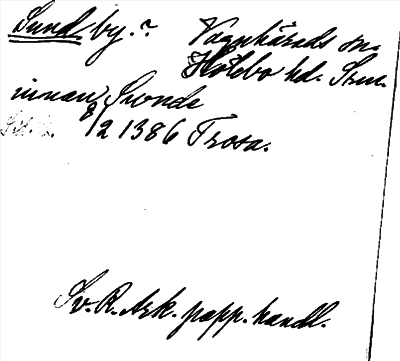 Sundby.? Vagnhärads sn.
Hölebo hd. Srm.
innan Sronde
8/2 1386 Trosa.
Sv. R. Ark. papp. handl.